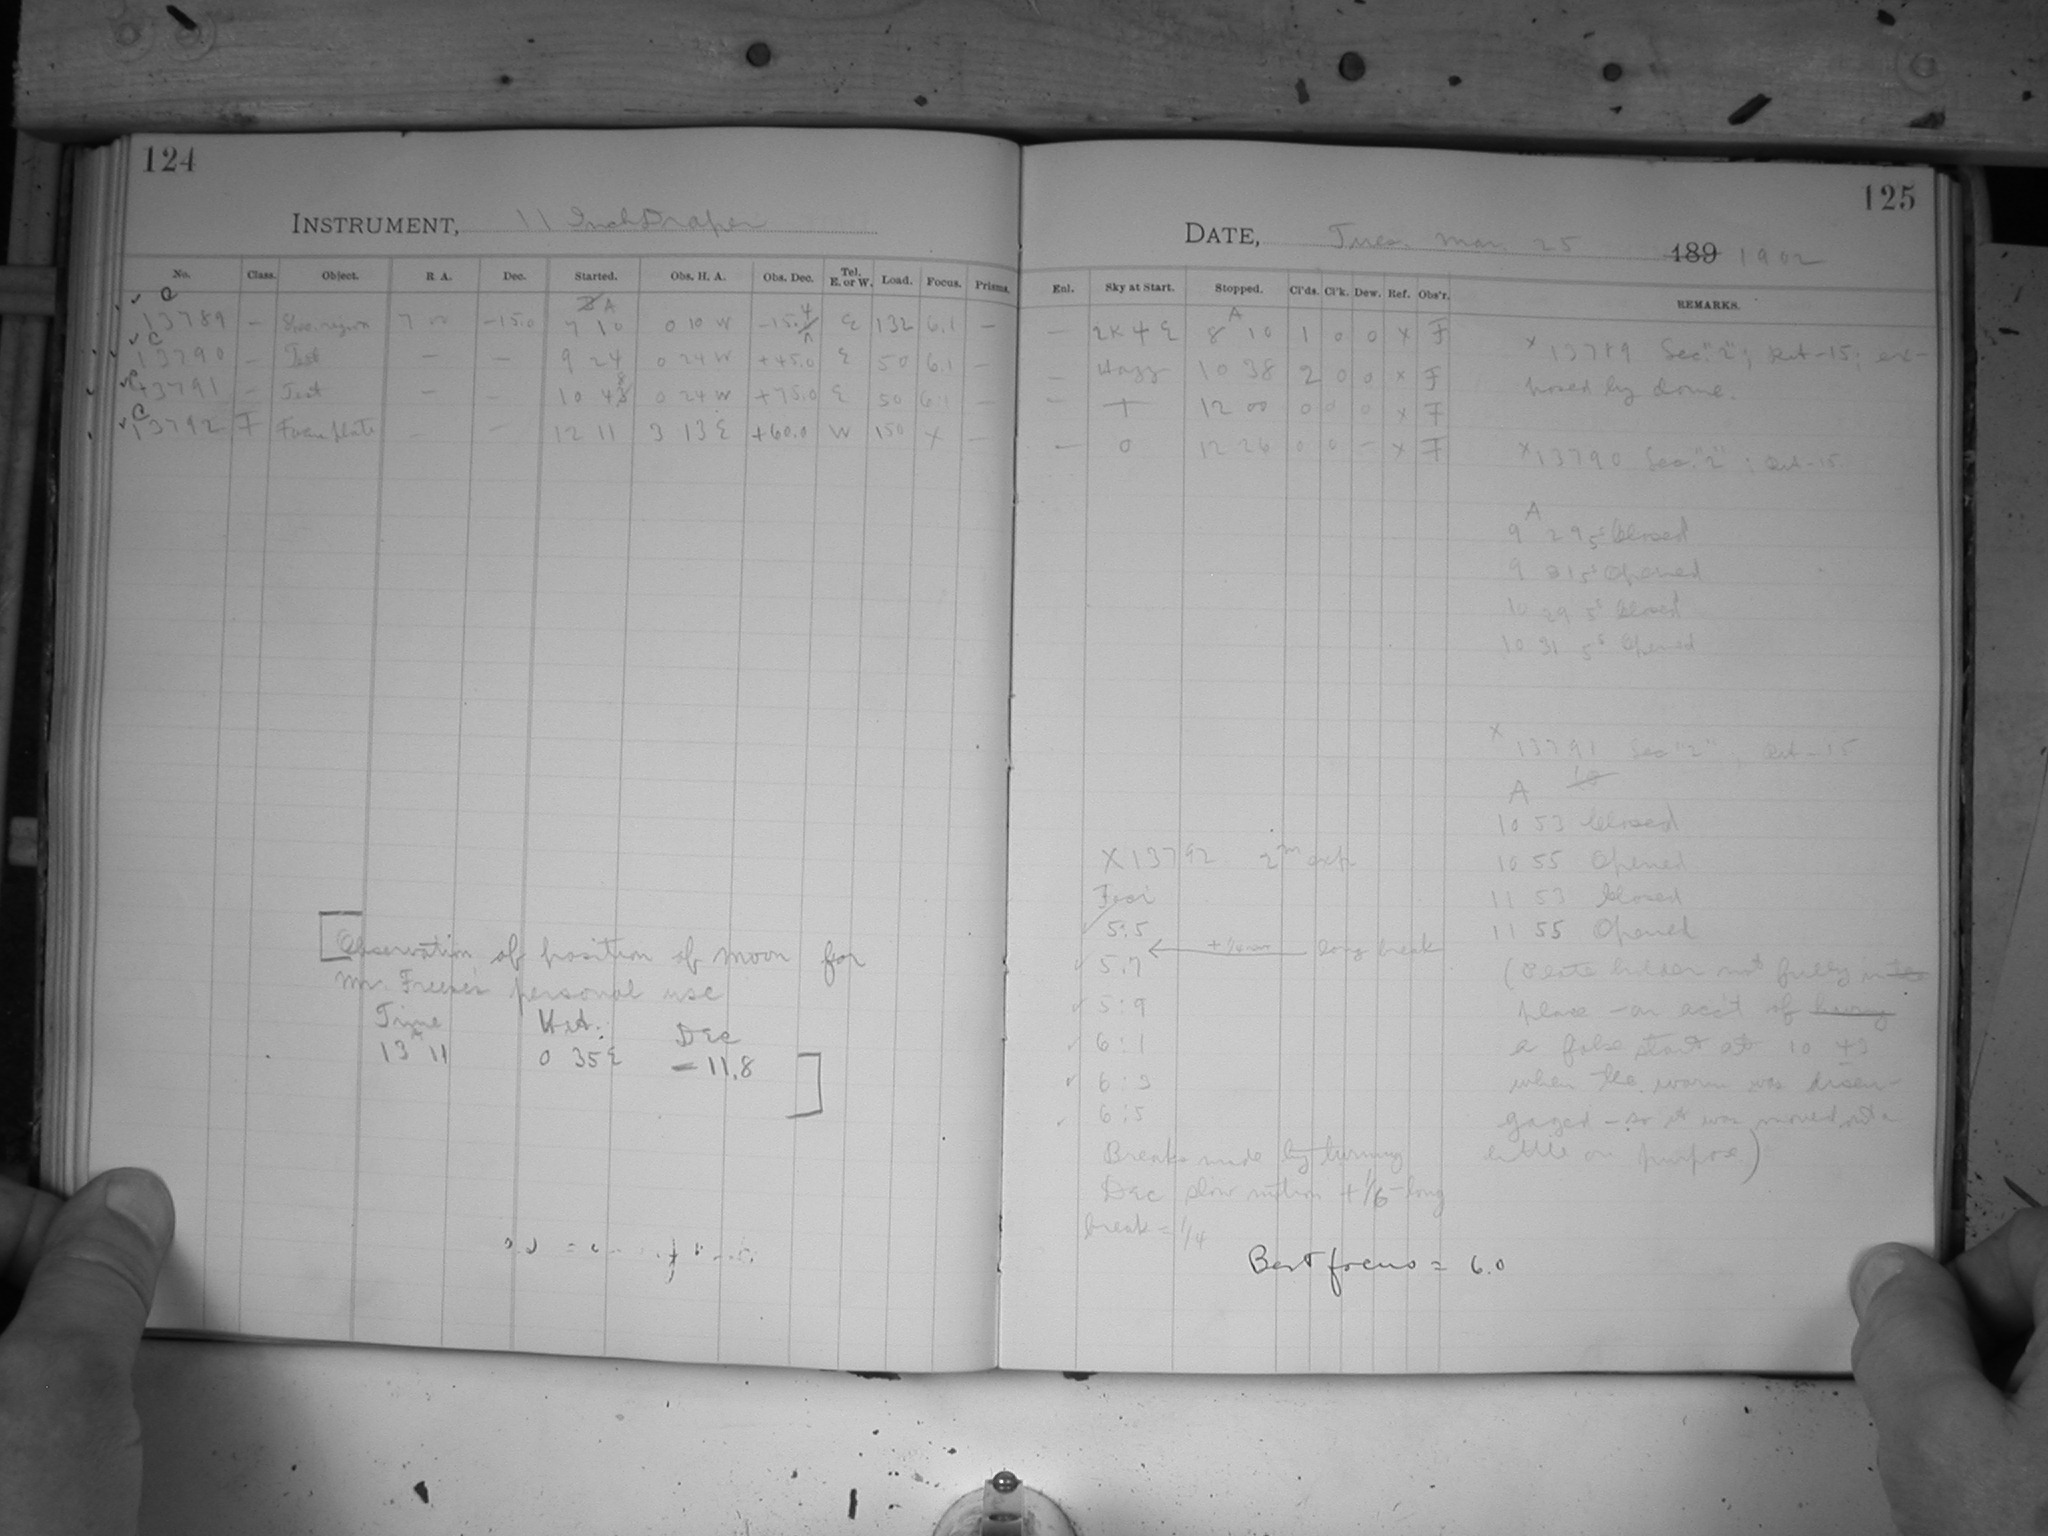 124
INSTRUMENT, 11 Inch Draper
No. Class. Object. R A. Dec. Started. Obs. H. A. Obs. Dec. Tel. E. or W. Load. Focus. Prisms.
A
13789 – region 7 00 –15.0 7 10 0 10 W –15.4 E 132 6.1 –
13790 – Test – – 9 24 0 24 W +45.0 E 50 6.1 –
13791 – Test – – 10 48 0 24 W +75.0 E 50 6.1 –
13792 F Focus plate – – 12 11 3 13 E +60.0 W 150 X –
Observation of position of moon for
Mr. Freese's personal use
Time H.A. Dec
13 11 0 35 E – 11.8
125
DATE, Tues. Mar. 25 189 1902
Enl. Sky at Start. Stopped. Cl'ds. Cl'k. Dew. Ref. Obs'r. REMARKS.
– 2K 4 E 8 A 10 1 0 0 x F
– Hazy 10 38 2 0 0 x F
– + 12 00 0 0 0 x F
– 0 12 26 0 0 – x F
x 13789 Sec. "2"; Ret –15; ex-
posed by dome.
x 13790 Sec. "2"; Ret –15
A
9 29 5s Closed
9 31 5s Opened
10 29 5s Closed
10 31 5s Opened
x 13791 Sec "2", Ret –15
A
10 53 Closed
10 55 Opened
11 53 Closed
11 55 Opened
(Plate holder not fully in
place – on acc't of
a false start at 10 43
when the worm was disen-
gaged – so it was moved out a
little on purpose)
X 13792 2m exp
Foci
5:5
5:7 ← long break
5:9
6:1
6:3
6:5
Breaks made by turning
Dec slow motion + 1/6 – long
break = 1/4
Best focus = 6.0